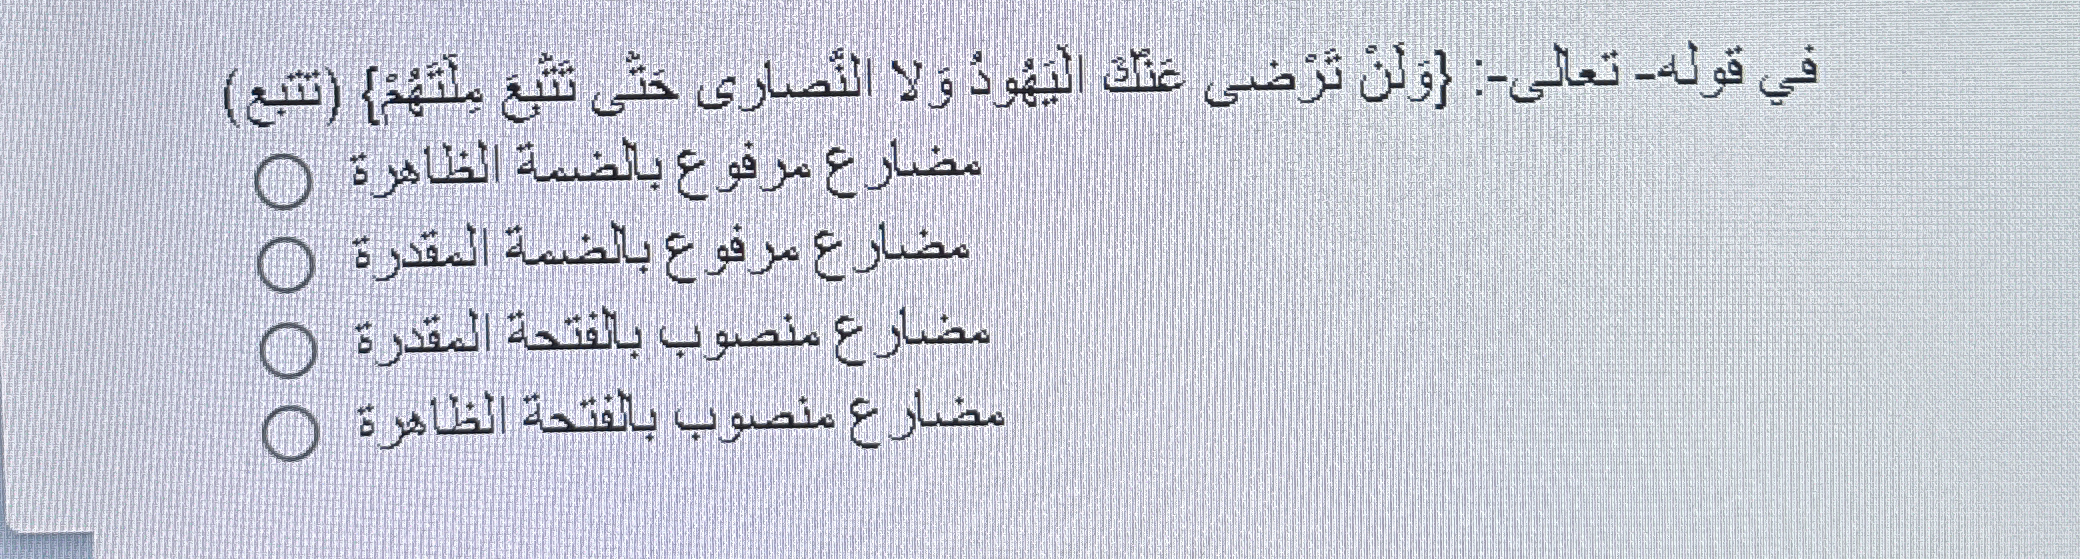 في قوله- تعالى-: {وَلَنْ تَرْضى عَنْكَ الْيَهُودُ وَلا النَّصارى حَتَّى تَتَّبِعَ مِلَّتَهُمْ} (تتبع)
مضارع مرفوع بالضمة الظاهرة
مضارع مرفوع بالضمة المقدرة
مضارع منصوب بالفتحة المقدرة
مضارع منصوب بالفتحة الظاهرة